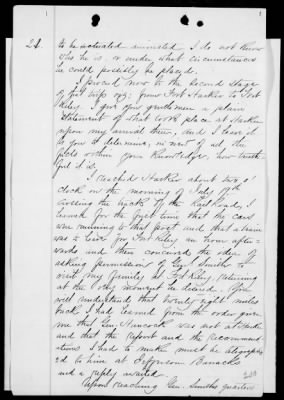 21.
to be activated animated I do not know
who he is, or under what circumstances
he could possibly be placed.
I proceed now to the second stage
of Fort Harker to Fort
Riley. I give you gentlemen a plain
statement of what took place at Harker
upon my arrival there, and I leave it
to you to determine, in view of all the
facts within your knowledge, how truth-
ful it is.
I reached Harker about two o'
clock on the morning of July 19th
crossing the track of the Railroad, I
learned for the first time that the cars
were running to that post and that a train
was to leave for Fort Riley an hour after-
wards and then conceived the idea of
asking permission of Genl Smith to
visit my family at Fort Riley, returning
at the very moment he desired. You
will understand that seventy eight miles
back I had learned from the order given
me that Gen. Hancock was not at Harker
and that the report and the recommend-
ations I had to make must be telegraph-
ed to him at Jefferson Barracks
and a reply awaited.
Upon reaching Gen. Smiths quarters